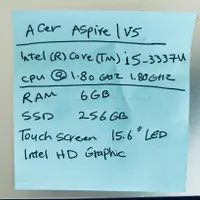 Acer Aspire | V5
Intel (R) Core (TM) i5-3337U
CPU @ 1.80 GHz 1.80GHz
RAM 6GB
SSD 256GB
Touch Screen 15.6" LED
Intel HD Graphic